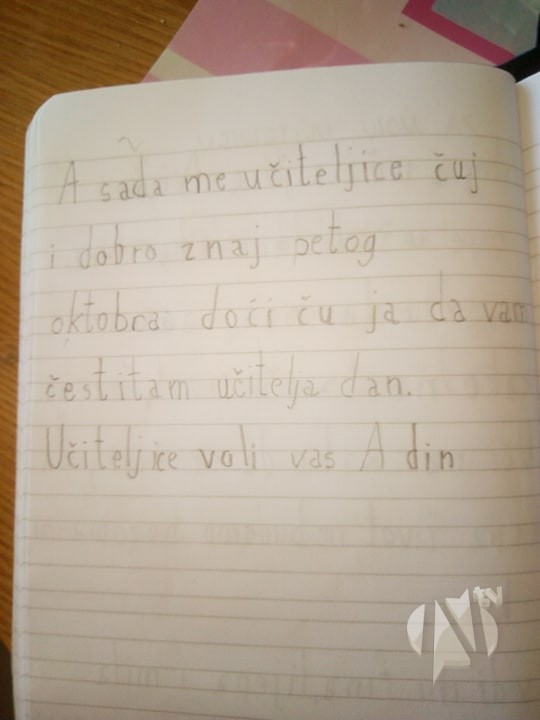 A sada me učiteljice čuj
i dobro znaj petog
oktobra doći ču ja da vam
čestitam učitelja dan.
Učiteljice voli vas Adin
NTV